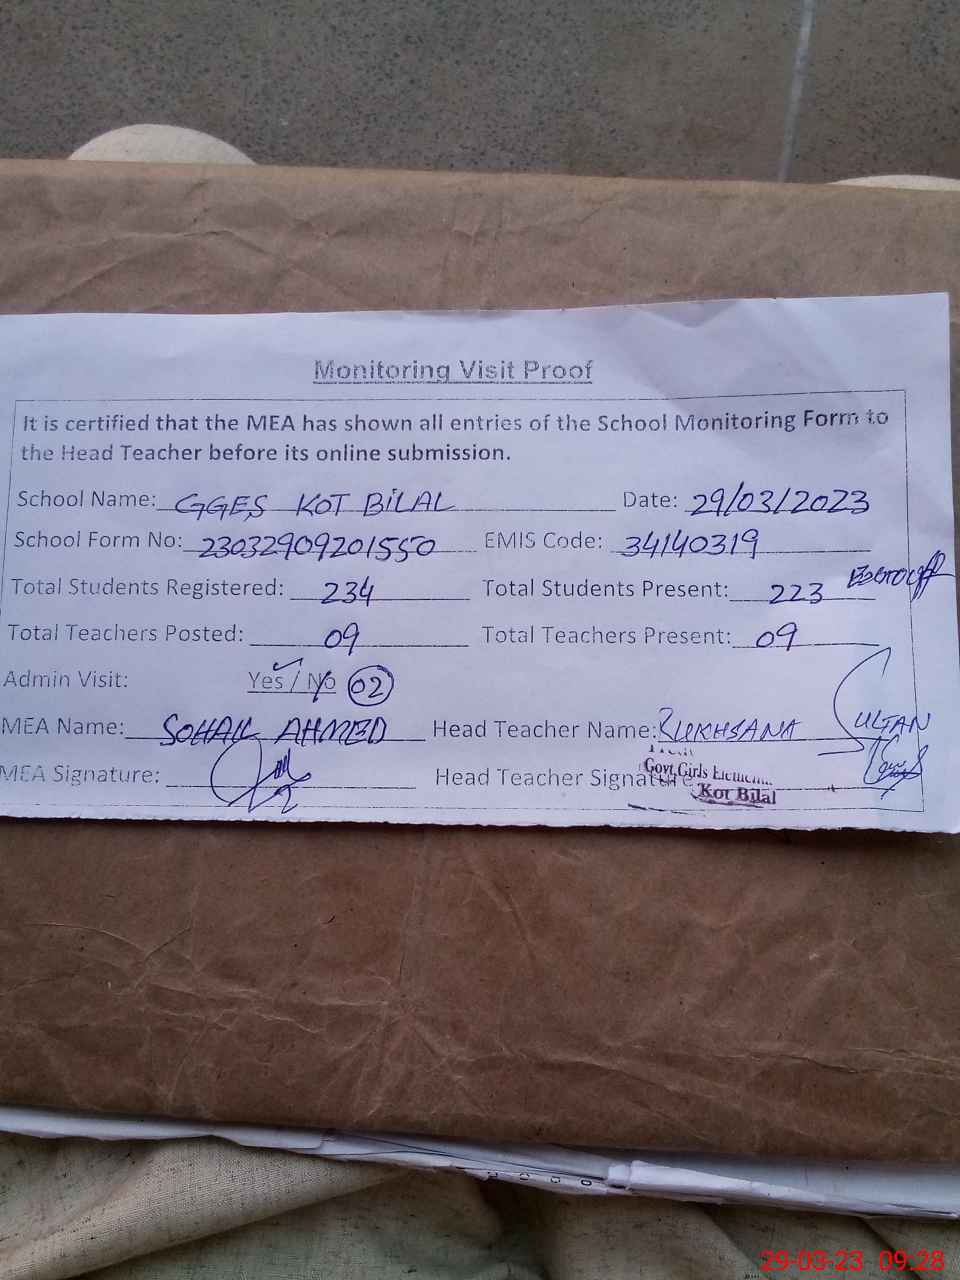 Monitoring Visit Proof
It is certified that the MEA has shown all entries of the School Monitoring Form to
the Head Teacher before its online submission.
School Name: GGES KOT BILAL Date: 29/03/2023
School Form No: 23032909201550 EMIS Code: 34140319
Total Students Registered: 234 Total Students Present: 223
Total Teachers Posted: 09 Total Teachers Present: 09
Admin Visit: Yes / No 02
MEA Name: SOHAIL AHMED Head Teacher Name: RUKHSANA SULTAN
MEA Signature: Head Teacher Signature
Govt. Girls
Kot Bilal
29-03-23 09:28